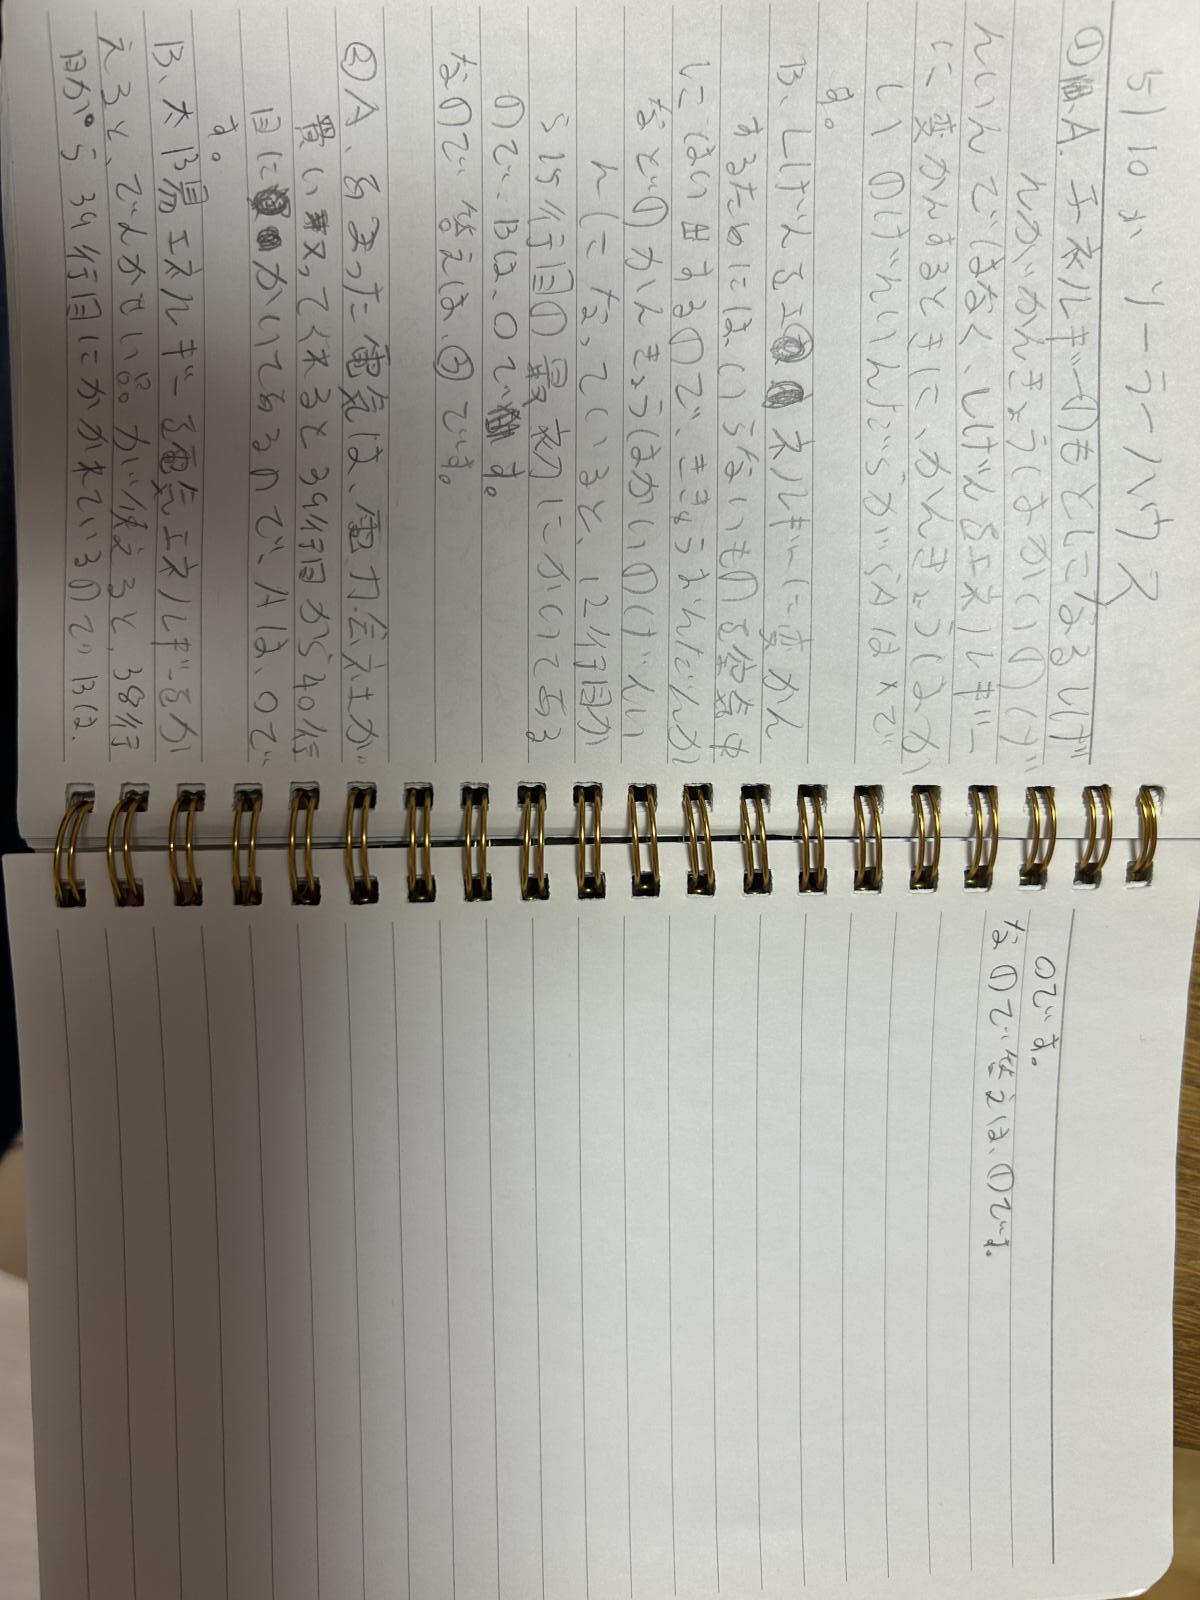 5/10か ソーラーハウス
①A.エネルギーのもとになるしげ
んがかんきょうはかいのげ
んいんではなく、しげんをエネルギー
に変かんするときに、かんきょうはか
いのげんいんだからAは×で
す。
B、しげんをエネルギーに変かん
するためには、いらないものを空気中
にはい出するので、ちきゅうおんだんか
などのかんきょうはかいのげんい
んになっていると、12行目か
ら15行目の最初にかいてある
ので、Bは、○です。
なので答えは、③です。
②A、あまった電気は、電力会社が
買い取ってくれると39行目から40行
目にかいてあるので、Aは、○で
す。
B、太陽エネルギーを電気エネルギーをか
えると、でんかせい品が使えると、38行
目から39行目にかかれているのでBは、
○です。
なので答えは、①です。